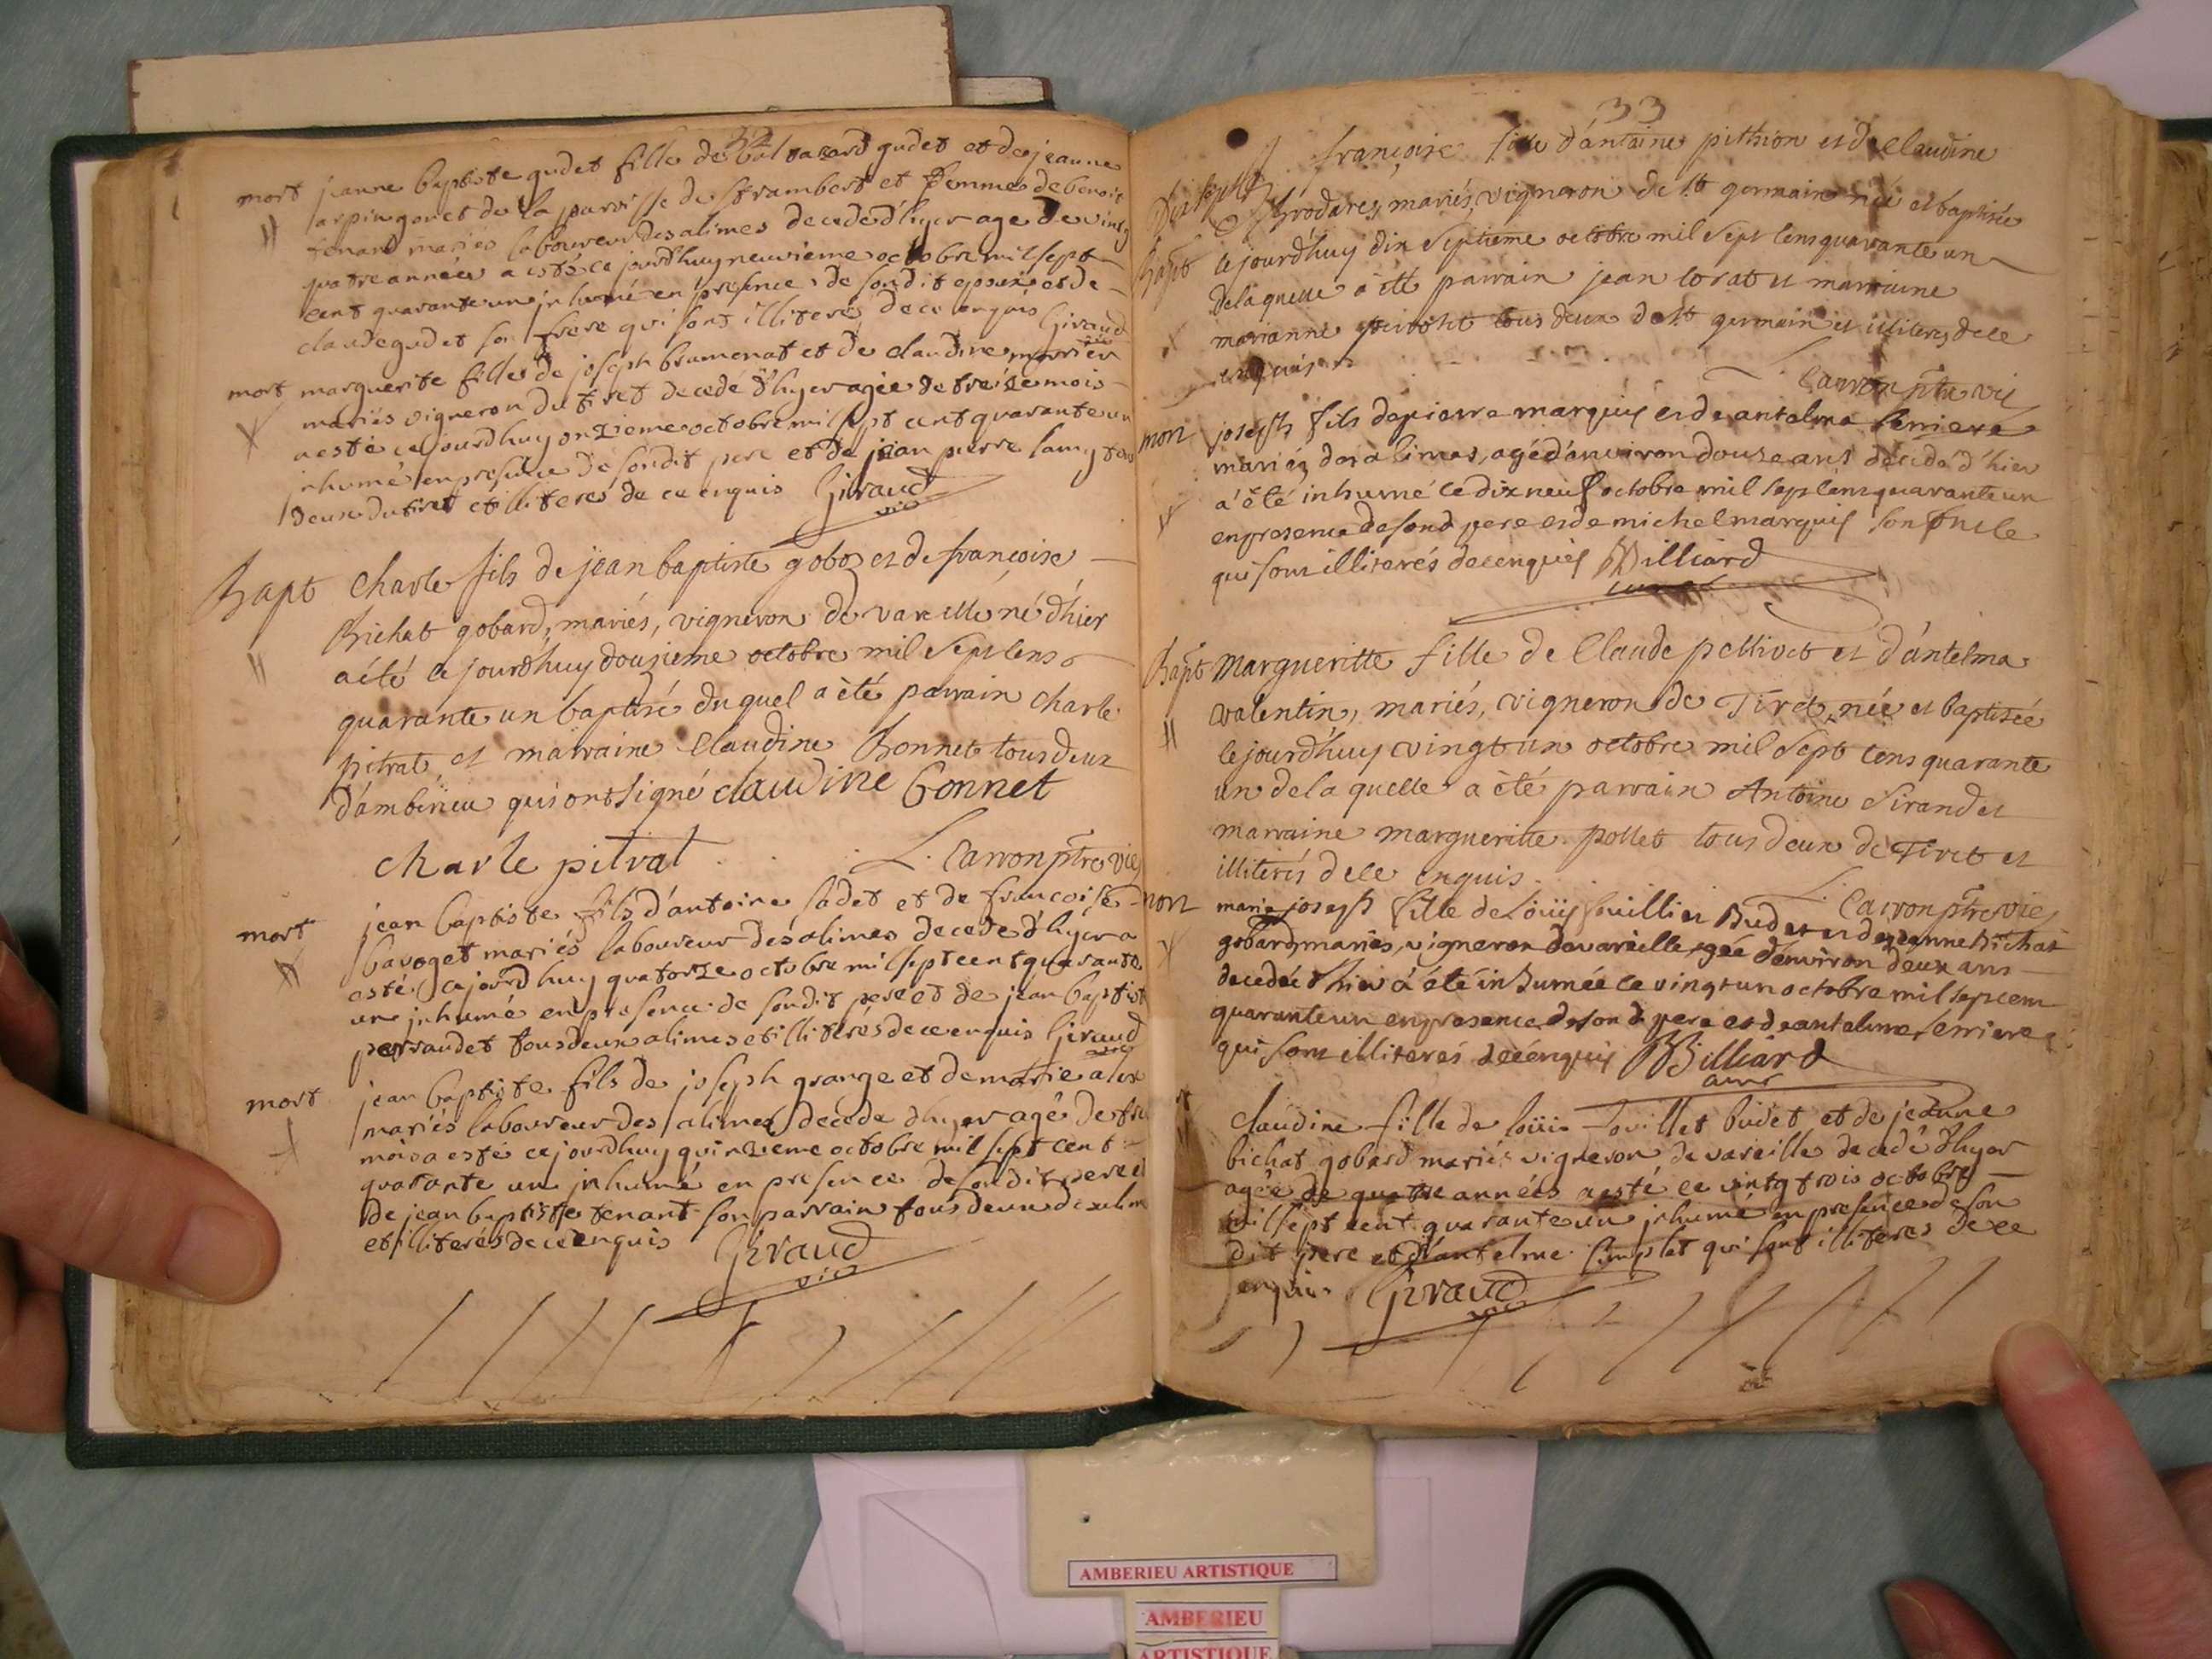 32
mort jeanne baptiste gudet fille de baltazard gudet et de jeanne
arpin gonet de la parroisse de st rambert et femme de benoit
tenant mariés laboureur des alimes decede d'hyer age de vingt
quatre années a esté ce jourdhuy neuvieme octobre mil sept
cent quarante un jnhumé en presence de son dit epoux et de
claude gudet son frere qui sont illiterés de ce enquis Giraud vic
mort marguerite fille de joseph brumenat et de claudine
mariés vigneron du tiret decedé d'hyer agée de treize mois
a esté ce jourdhuy onzieme octobre mil sept cent quarante un
jnhumé en presence de son dit pere et de jean pierre lamy tous
deux du tiret et illiterés de ce enquis Giraud
vic
Bapt Charle fils de jean baptiste goboz et de françoise
Bichat gobard, mariés, vigneron de vareille né d'hier
a été ce jourd'huy douzieme octobre mil sept cens
quarante un baptisé duquel a été parrain Charle
pitrat, et marraine Claudine Bonnet tous deux
d'ambérieu qui ont signé claudine bonnet
charle pitrat L. Carron ptre vic
mort jean baptiste fils d'antoine sadet et de francoise
bavoget mariés laboureur des alimes decede d'hyer a
esté ce jourd huy quatorze octobre mil sept cent quarante
un jnhumé en presence de son dit pere et de jean baptist
perraudet tous deux alimes et illiterés de ce enquis Giraud
vic
mort jean baptiste fils de joseph grange et de marie alex
mariés laboureur des alimes decede d hyer agé de
mois a esté ce jourdhuy quinzieme octobre mil sept cent
quarante un jnhumé en presence de son dit pere et
de jean baptiste tenant son parrain tous deux des alim
et illiterés de ce enquis Giraud
vic
33
françoise fille d'antoine pithion et de Claudine
Dix sept
Brodares, mariés, vigneron de st germain née et baptisée
Bapt ce jourd'huy dix septieme octobre mil sept cens quarante un
de laquelle a été parrain jean torat et marraine
marianne tous deux de st germain et illiterés de ce
enquis
L. Carron ptre vic
mort joseph fils de pierre marquis et de antelma ferriere
mariés des alimes, agé d'environ douze ans décédé d'hier
a été inhumé ce dix neuf octobre mil sept cens quarante un
en presence de son d pere et de michel marquis son oncle
qui sont illiterés de ce enquis Billiard
curé
Bapt Margueritte fille de Claude pellivet et d'antelma
valentin, mariés, vigneron de Tiret, née et baptisée
ce jourd'huy vingt un octobre mil sept cens quarante
un de laquelle a été parrain Antoine Sirand et
marraine margueritte pollet tous deux de Tiret et
illiterés de ce enquis
L. Carron ptre vic
mort marie joseph fille de Loüis souillier Budet et de jeanne Bichat
gobard, mariés, vigneron de vareille agée d'environ deux ans
decedée d'hier a été inhumée ce vingt un octobre mil sept cens
quarante un en presence de son d pere et de antelme ferriere
qui sont illiterés de ce enquis Billiard
curé
claudine fille de loüis souillet budet et de jeanne
bichat gobard mariés vigneron de vareille decedé d'hyer
agée de quatre années a esté ce vintg trois octobre
mil sept cent quarante un jnhumé en presence de son
dit pere et d'antelme simplet qui sont illiteres de ce
enquis Giraud
vic
AMBERIEU ARTISTIQUE
AMBERIEU
ARTISTIQUE